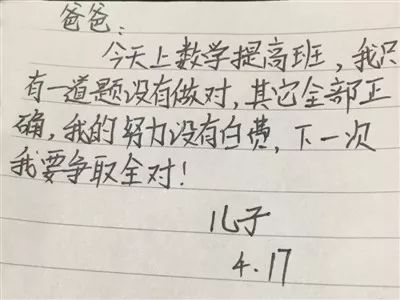 爸爸:
今天上数学提高班，我只
有一道题没有做对，其它全部正
确，我的努力没有白费，下一次
我要争取全对！
儿子
4.17